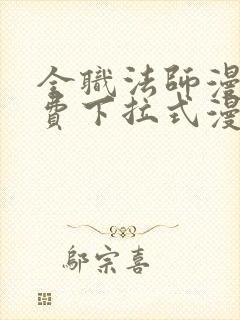 全職法師漫
費下拉式漫
鄔宗喜